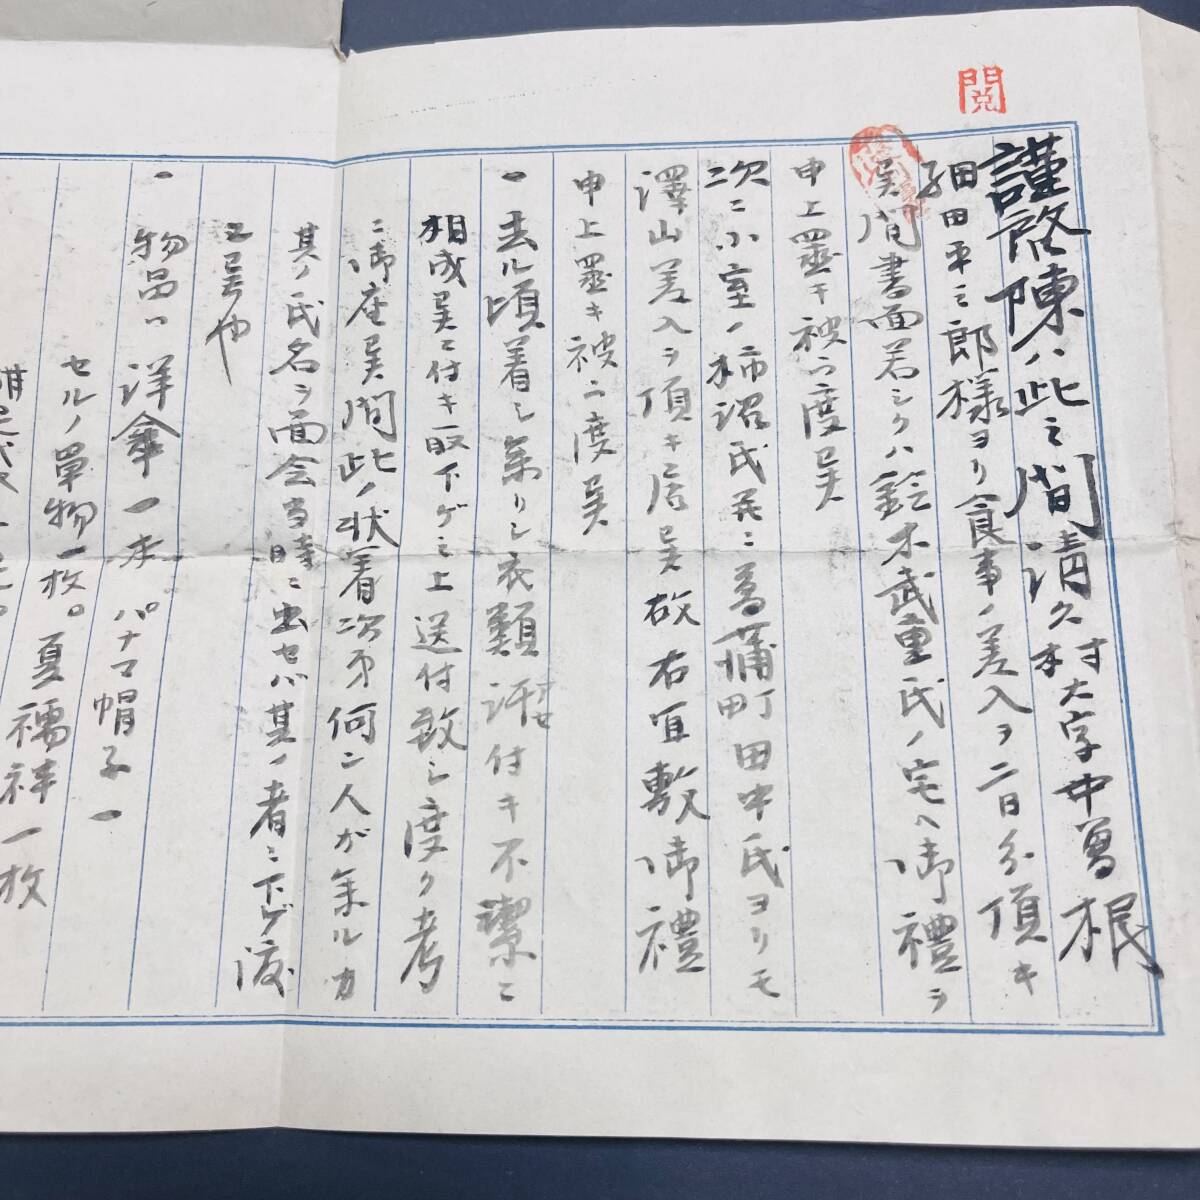 閲
謹啓陳ハ此之間清久村大字中曽根
田平三郎様ヨリ食事ノ差入ヲ二日分頂キ
呉間書面若シクハ鈴木武重氏ノ宅ヘ御禮ヲ
申上置キ被下度呉
次ニ小室ノ柿沼氏並ニ菖蒲町田中氏ヨリモ
澤山差入ヲ頂キ居呉故右宜敷御禮
申上置キ被下度呉
一去ル頃着シ参リシ衣類汗付キ不潔ニ
相成呉ニ付キ一度下ゲ之上送付致シ度ク考
ニ御座呉間此ノ状着次第何ン人ガ参ルカ
其ノ氏名ヲ面会当時ニ出セバ其ノ者ニ下ゲ渡
物品ハ洋傘一本パナマ帽子一
セルノ單物一枚。夏襦袢一枚